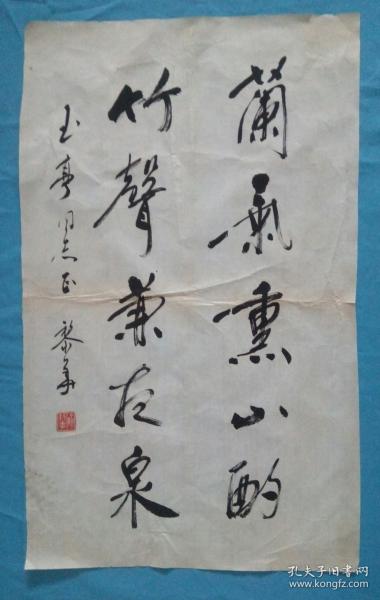 蘭氣熏山酌
竹聲兼夜泉
玉亭同志正 黎
孔夫子旧书网
www.kongfz.com